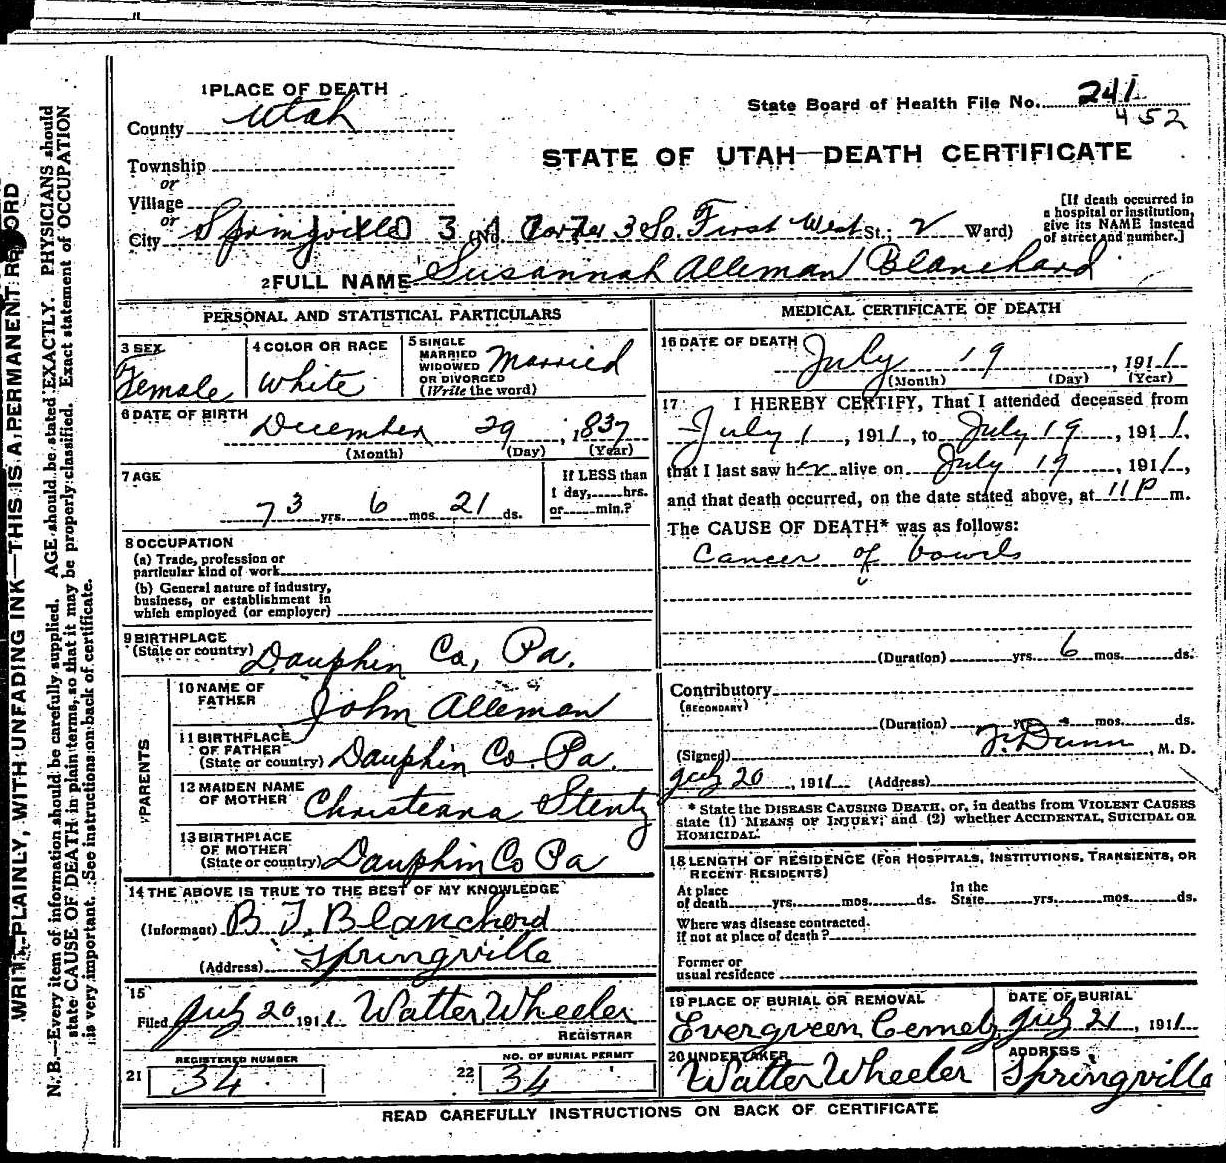 1 PLACE OF DEATH
County Utah
State Board of Health File No. 241
452
STATE OF UTAH—DEATH CERTIFICATE
Township
or
Village
or
City Springville (No. Corner 3 So. First West St.; 2 Ward)
[If death occurred in
a hospital or institution,
give its NAME instead
of street and number.]
2 FULL NAME Susannah Alleman Blanchard
PERSONAL AND STATISTICAL PARTICULARS
3 SEX
Female
4 COLOR OR RACE
White
5 SINGLE
MARRIED
WIDOWED
OR DIVORCED
(Write the word)
Married
6 DATE OF BIRTH
December 29, 1837
(Month) (Day) (Year)
7 AGE
73 yrs. 6 mos. 21 ds.
If LESS than
1 day,......hrs.
or......min.?
8 OCCUPATION
(a) Trade, profession or
particular kind of work
(b) General nature of industry,
business, or establishment in
which employed (or employer)
9 BIRTHPLACE
(State or country) Dauphin Co, Pa.
PARENTS
10 NAME OF
FATHER John Alleman
11 BIRTHPLACE
OF FATHER
(State or country) Dauphin Co. Pa.
12 MAIDEN NAME
OF MOTHER Christeana Stentz
13 BIRTHPLACE
OF MOTHER
(State or country) Dauphin Co Pa
14 THE ABOVE IS TRUE TO THE BEST OF MY KNOWLEDGE
(Informant) B T. Blanchard
(Address) Springville
15
Filed July 20 1911 Walter Wheeler
REGISTRAR
REGISTERED NUMBER
21 34
NO. OF BURIAL PERMIT
22 34
MEDICAL CERTIFICATE OF DEATH
16 DATE OF DEATH
July 19, 1911
(Month) (Day) (Year)
17 I HEREBY CERTIFY, That I attended deceased from
July 1, 1911, to July 19, 1911,
that I last saw her alive on July 19, 1911,
and that death occurred, on the date stated above, at 11 P m.
The CAUSE OF DEATH* was as follows:
Cancer of bowels
(Duration) yrs. 6 mos. ds.
Contributory
(SECONDARY)
(Duration) yrs. mos. ds.
(Signed) F. Dunn, M. D.
July 20, 1911 (Address)
* State the DISEASE CAUSING DEATH, or, in deaths from VIOLENT CAUSES
state (1) MEANS OF INJURY; and (2) whether ACCIDENTAL, SUICIDAL OR
HOMICIDAL.
18 LENGTH OF RESIDENCE (FOR HOSPITALS, INSTITUTIONS, TRANSIENTS, OR
RECENT RESIDENTS)
At place
of death yrs. mos. ds.
In the
State yrs. mos. ds.
Where was disease contracted.
If not at place of death?
Former or
usual residence
19 PLACE OF BURIAL OR REMOVAL
Evergreen Cemety
DATE OF BURIAL
July 21, 1911
20 UNDERTAKER
Walter Wheeler
ADDRESS
Springville
READ CAREFULLY INSTRUCTIONS ON BACK OF CERTIFICATE
WRITE PLAINLY, WITH UNFADING INK—THIS IS A PERMANENT RECORD
N. B.—Every item of information should be carefully supplied. AGE should be stated EXACTLY. PHYSICIANS should
state CAUSE OF DEATH in plain terms, so that it may be properly classified. Exact statement of OCCUPATION
is very important. See instructions on back of certificate.